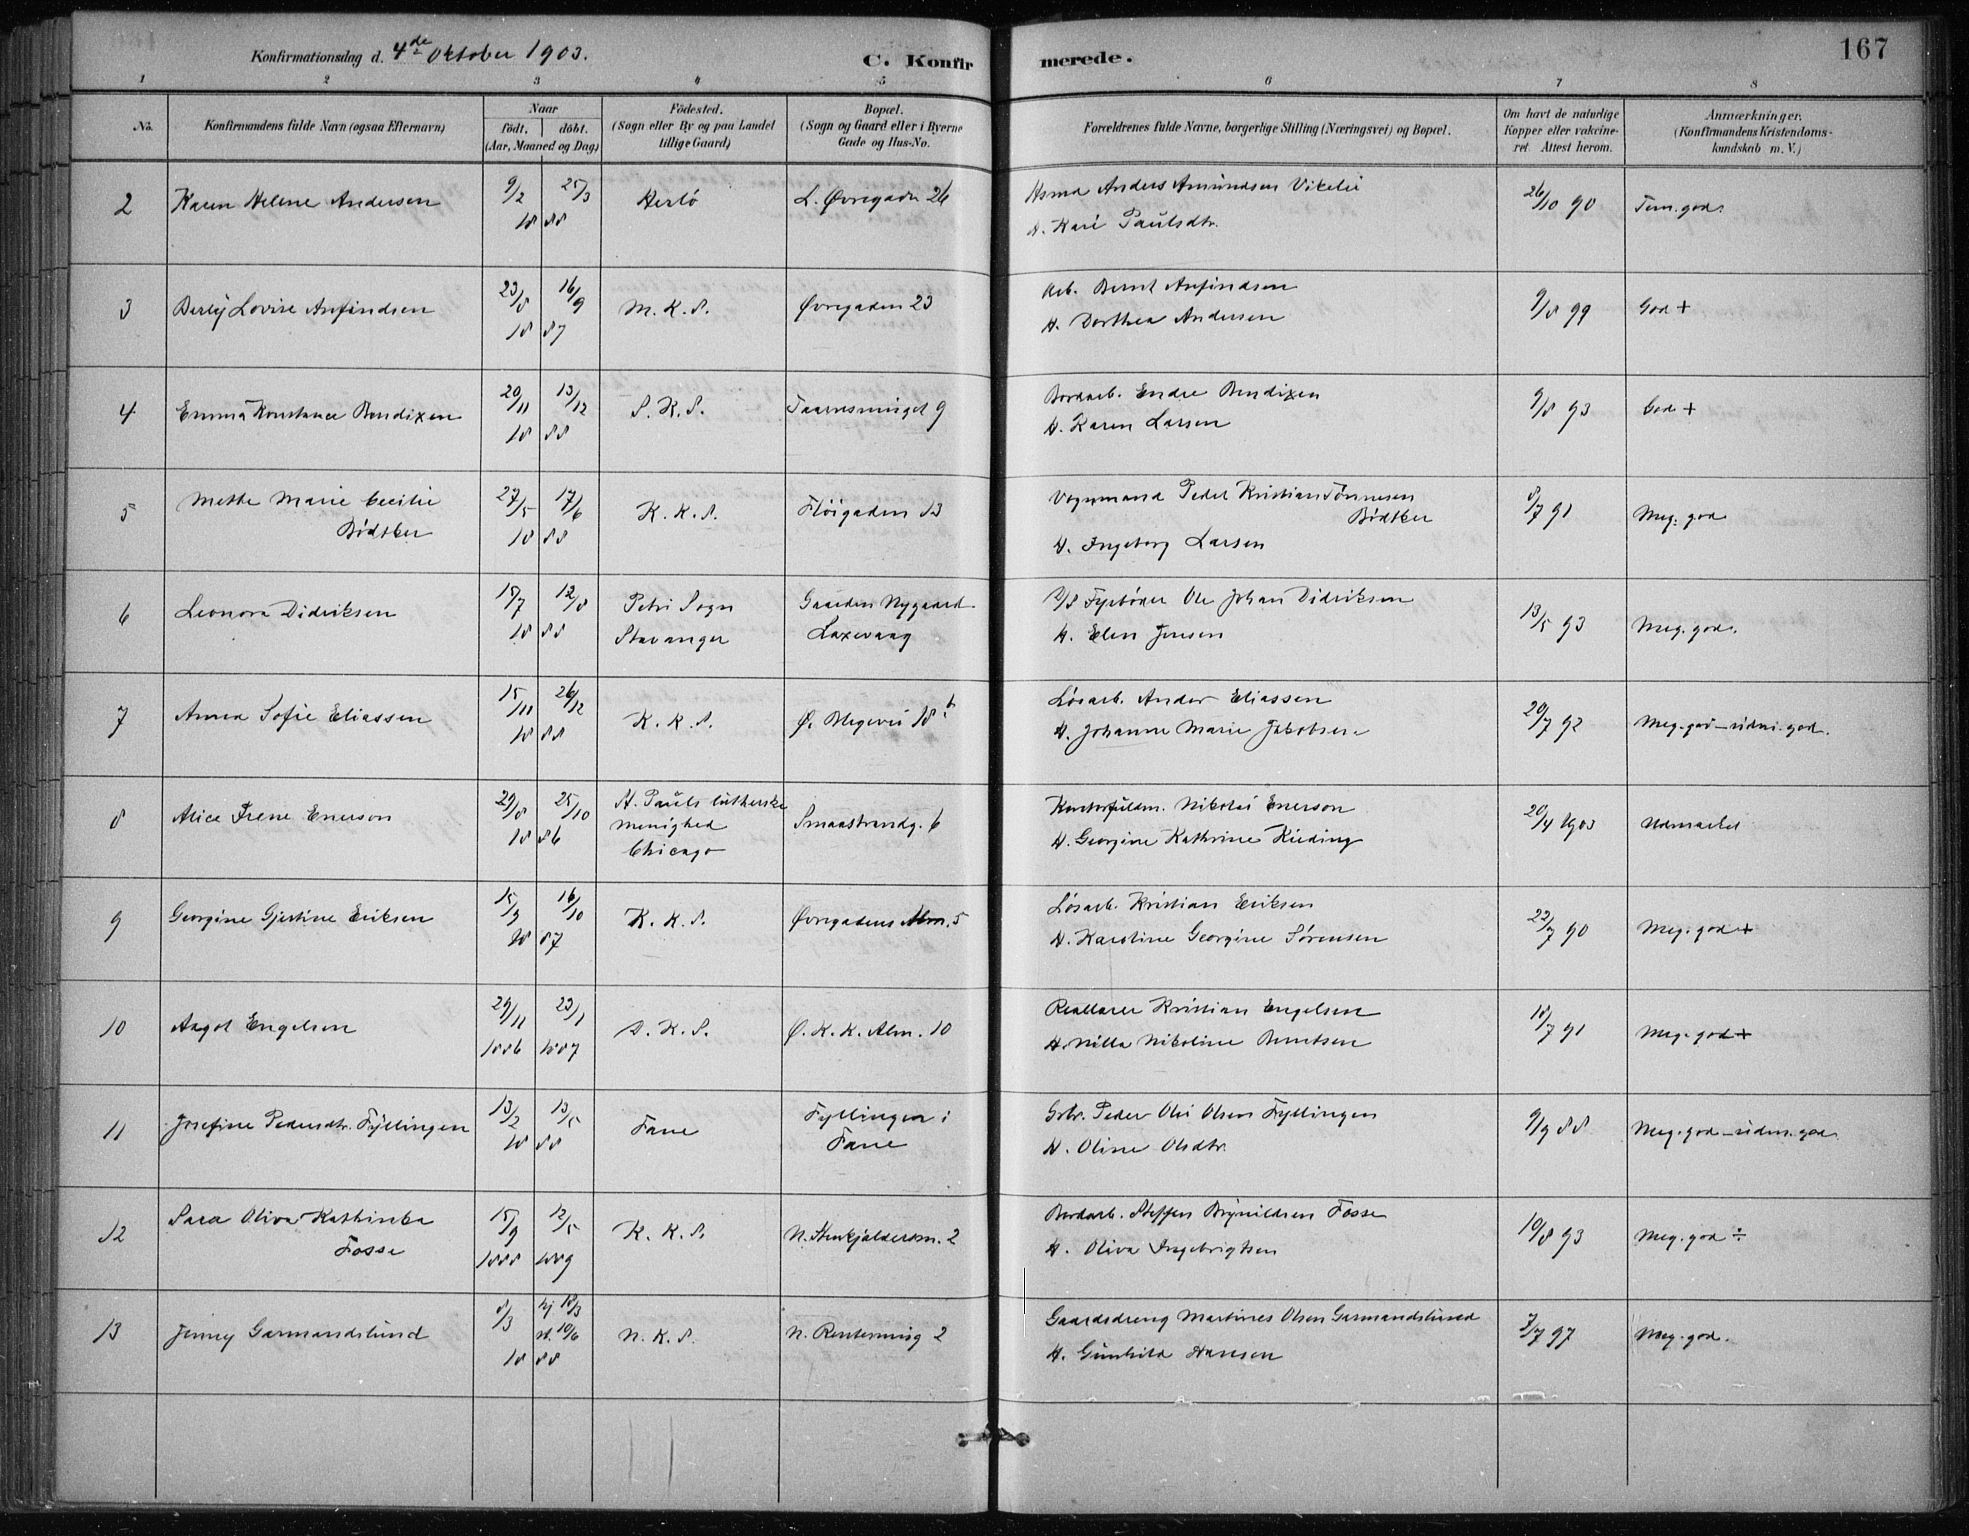 Konfirmationsdag d. 4de Oktober 1903.
C. Konfirmerede.
167
1 2 3 4 5 6 7 8
No. Konfirmandens fulde Navn (ogsaa Efternavn) Naar födt. döbt. (Aar, Maaned og Dag) Födested. (Sogn eller By og paa Landet tillige Gaard) Bopæl. (Sogn og Gaard eller i Byerne Gade og Hus-No. Forældrenes fulde Navne, borgerlige Stilling (Næringsvei) og Bopæl. Om havt de naturlige Kopper eller vakcineret. Attest herom. Anmærkninger. (Konfirmandens Kristendomskundskab m. V.)
2 Karen Helene Andersen 9/2 25/3 Herlö L. Øvregade 26 Anders Amundsen Vikelie 26/10 90 Tem. god.
18 88 H. Kari Paulsdtr.
3 Lovise Anfindsen 23/8 16/9 M. K. S. Øvregaden 23 Arb. Bernt Anfindsen 9/8 99 God +
18 87 H. Dorthea Andersen
4 Emma Konstance Bendixen 20/11 13/12 S. K. S. 9 Bordarb. Endre Bendixen 9/8 93 God +
18 88 H. Karen Larsen
5 Mette Marie Cecilie 27/5 17/6 K. K. S. Flöigaden 13 Vognmand Peder Kristian Tönnesen 8/7 91 Meg. god
Bødtker 18 88 Bødtker
H. Ingeborg Larsen
6 Leonora Didriksen 15/7 12/8 Petri Sogn Gaarden Nygaard Fyrböder Ole Johan Didriksen 13/5 93 Meg. god.
18 88 Stavanger Laxevaag H. Elen Jensen
7 Anna Sofie Eliassen 15/11 26/12 K. K. S. Ø. Blegevei 18 b Løsarb. Ander Eliassen 20/7 92 Meg. god - udm. god.
18 88 H. Johanne Marie Jakobsen
8 Alice Irene Enerson 29/8 25/10 St. Pauls lutherske Smaastrandg. 6 Kontorfuldm. Nikolai Enerson 20/4 1903 Udmærket
18 86 Menighed H. Georgine Kathrine Kieding
Chicago
9 Georgine Gjertine Eriksen 15/9 16/10 K. K. S. Øvregadens Alm. 5 Løsarb. Kristian Eriksen 22/7 90 Meg. god +
18 87 H. Karoline Georgine Sørensen
10 Aagot Engelsen 29/11 23/1 D. K. S. Ø. K. K. Alm. 10 Kristian Engelsen 18/7 91 Meg. god +
1886 1887 H. Milla Nikoline Berntsen
11 Josefine Pedersdtr. Fyllingen 13/2 13/5 Fane Fyllingen i Gbr. Peder Olai Olsen Fyllingen 9/9 88 Meg. god - udm. god.
18 88 Fane H. Oline Olsdtr.
12 Sara Oliva Kathinka 15/9 12/5 K. K. S. N. Stenkjældersm. 2 Bordarb. Steffen Brynildsen Fosse 10/8 93 Meg. god ÷
Fosse 1888 1889 H. Oliva Ingebrigtsen
13 Jenny Garmandslund 8/3 hj. 18/3 N. K. S. N. 2 Gaardsdreng Martines Olsen Garmandslund 7/7 97 Meg. god.
st. 10/6
18 88 H. Gunhild Hansen